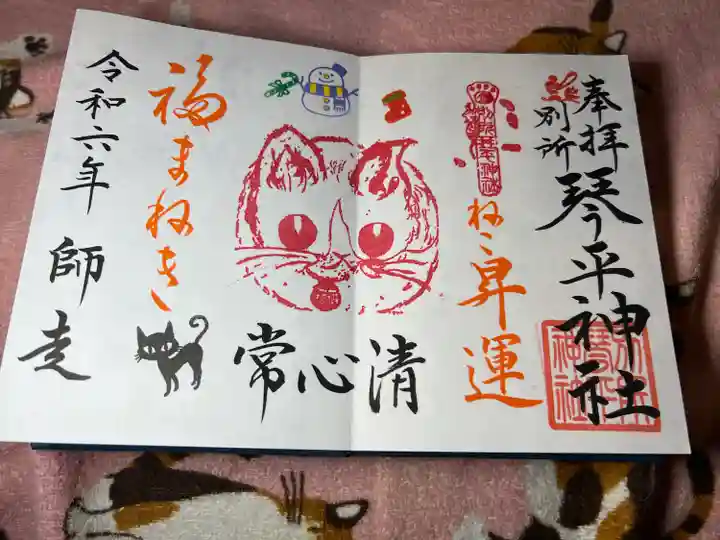 奉拝
別所
琴平神社
ねこ昇運
清心常
福まねき
令和六年
師走